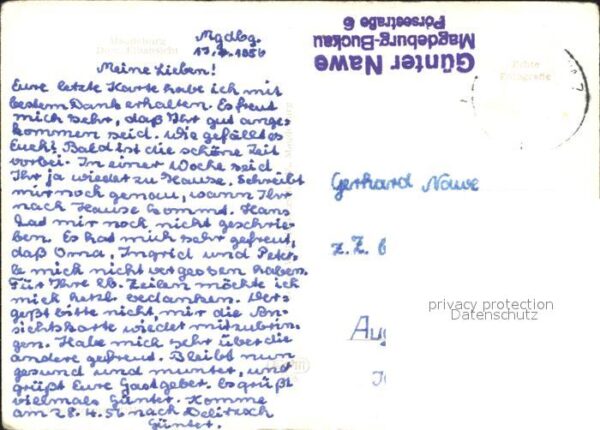 Mgdbg.
13.4.1956
Meine Lieben!
Eure letzte Karte habe ich mit
bestem Dank erhalten. Es freut
mich sehr, daß Ihr gut ange-
kommen seid. Wie gefällt es
Euch? Bald ist die schöne Zeit
vorbei. In einer Woche seid
Ihr ja wieder zu Hause. Schreibt
mir noch genau, wann Ihr
nach Hause kommt. Hans
hat mir noch nicht geschrie-
ben. Es hat mich sehr gefreut,
daß Oma, Ingrid und Peter-
le mich nicht vergessen haben.
Für Ihre lb. Zeilen möchte ich
mich herzl. bedanken. Ver-
geßt bitte nicht, mir die An-
sichtskarte wieder mitzubrin-
gen. Habe mich sehr über die
andere gefreut. Bleibt nun
gesund und munter, und
grüßt Eure Gastgeber. Es grüßt
vielmals Günter. Komme
am 28.4.56 nach Delitzsch
Günter.
Günter Nawe
Magdeburg-Buckau
Pörsestraße 6
Echte
Fotografie
Gerhard Nawe
z. Z. b
Aug
privacy protection
Datenschutz